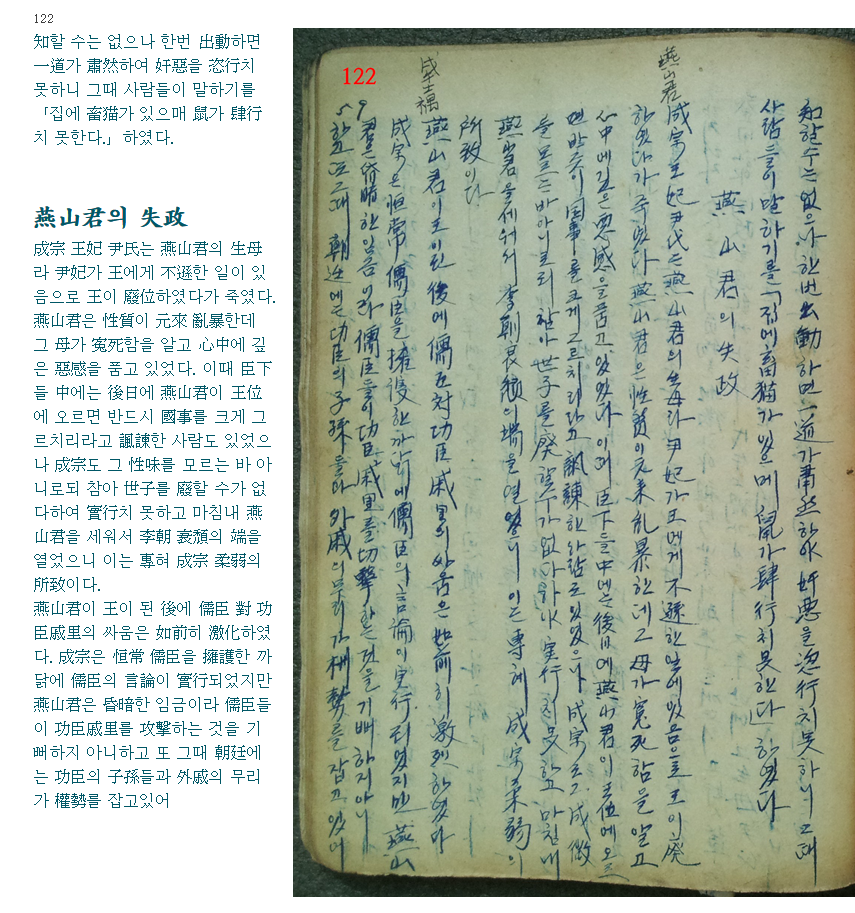 122
知할 수는 없으나 한번 出動하면
一道가 肅然하여 奸惡을 恣行치
못하니 그때 사람들이 말하기를
「집에 畜猫가 있으매 鼠가 肆行
치 못한다.」하였다.
燕山君의 失政
成宗 王妃 尹氏는 燕山君의 生母
라 尹妃가 王에게 不遜한 일이 있
음으로 王이 廢位하였다가 죽였다.
燕山君은 性質이 元來 亂暴한데
그 母가 寃死함을 알고 心中에 깊
은 惡感을 품고 있었다. 이때 臣下
들 中에는 後日에 燕山君이 王位
에 오르면 반드시 國事를 크게 그
르치리라고 諷諫한 사람도 있었으
나 成宗도 그 性味를 모르는 바 아
니로되 참아 世子를 廢할 수가 없
다하여 實行치 못하고 마침내 燕
山君을 세워서 李朝 衰頹의 端을
열었으니 이는 專혀 成宗 柔弱의
所致이다.
燕山君이 王이 된 後에 儒臣 對 功
臣戚里의 싸움은 如前히 激化하였
다. 成宗은 恒常 儒臣을 擁護한 까
닭에 儒臣의 言論이 實行되었지만
燕山君은 昏暗한 임금이라 儒臣들
이 功臣戚里를 攻擊하는 것을 기
뻐하지 아니하고 또 그때 朝廷에
는 功臣의 子孫들과 外戚의 무리
가 權勢를 잡고있어
122
知할 수는 없으나 한번 出動하면 一道가 肅然하야 奸悪을 恣行치 못하니 그때
사람들이 말하기를 「집에 畜猫가 있으메 鼠가 肆行치 못한다」 하였다
燕山君의 失政
燕山君
成宗王妃尹氏는 燕山君의 生母라 尹妃가 王에게 不遜한 일에 있음으로 王이 廢
하였다가 죽였다 燕山君은 性質이 元來 乱暴한데 그 母가 寃死함을 알고
心中에 깊은 悪感을 품고 있었다 이때 臣下들 中에는 後日에 燕山君이 王位에 오르
면 반드시 国事를 크게 그르치리라고 諷諫한 사람도 있었으나 成宗도 그
을 모르는 바 아니로되 참아 世子를 廃할 수가 없다하야 実行치 못하고 마침내
燕山君을 세워서 李朝衰頹의 端을 열었으니 이는 專혀 成宗柔弱의
所致이다
燕山君이 王이 된 後에 儒臣対功臣戚里의 싸움은 如前히 激烈하였다
成宗은 恒常 儒臣을 擁護한 까닭에 儒臣의 言論이 実行되였지만 燕山
君은 昏暗한 임금이라 儒臣들이 功臣戚里를 攻擊하는 것을 기뻐하지 아니
하고 또 그때 朝廷에는 功臣의 子孫들과 外戚의 무리가 權勢를 잡고 있어